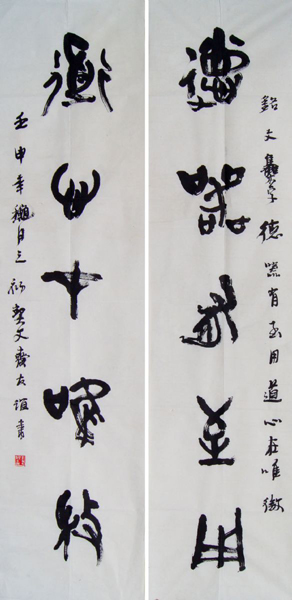 銘文集字德器有至用道心在唯微
德器有至用
道心在唯微
壬申年臘月之初契文齋友誼書